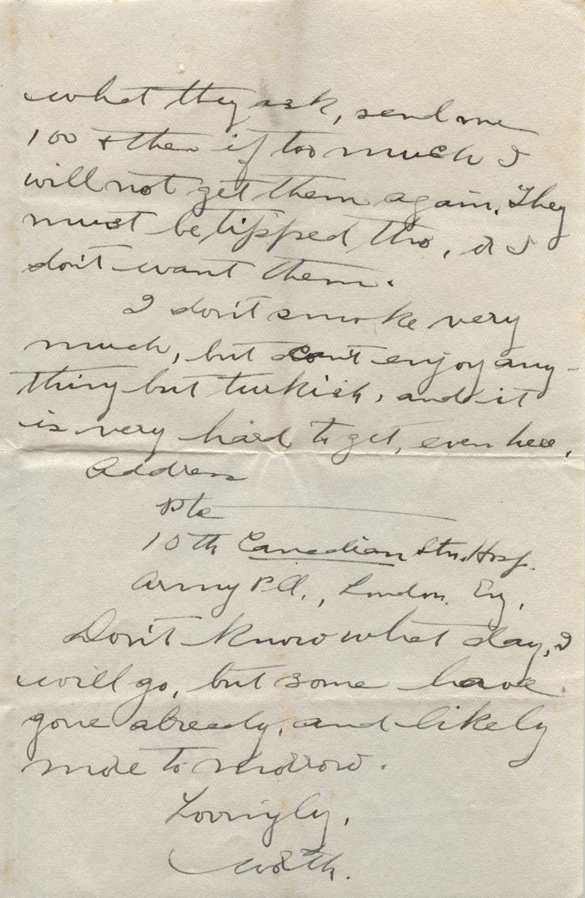 what they ask, send me
100 & then if too much I
will not get them again. They
must be tipped tho, or I
don't want them.
I don't smoke very
much, but can't enjoy any-
thing but turkish, and it
is very hard to get, even here.
Address
Pte
10th Canadian Stn. Hosp.
Army P.O., London. Eng.
Don't know what day, I
will go, but some have
gone already, and likely
more to morrow.
Lovingly,